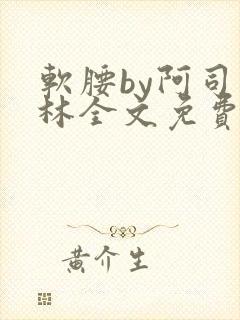 軟腰by阿司
林全文免費
黃介生